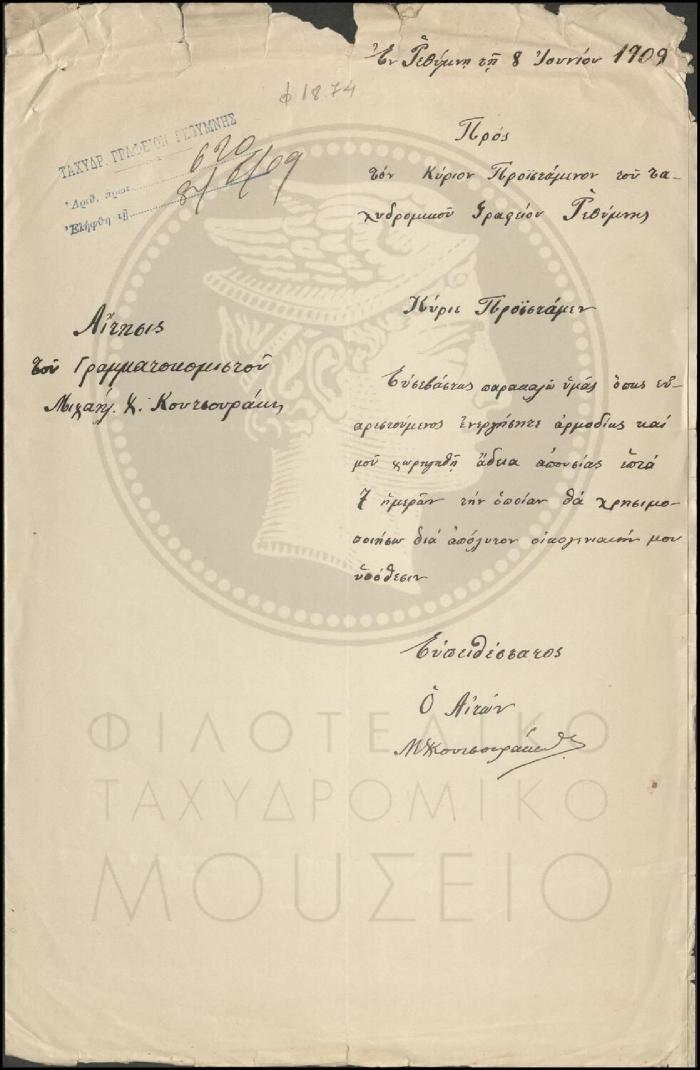 Ἐν Ῥεθύμνῃ τῇ 8 Ἰουνίου 1909
φ 18.74
ΤΑΧΥΔΡ. ΓΡΑΦΕΙΟΝ ΡΕΘΥΜΝΗΣ
Ἀριθ. πρωτ. 620
Ἐλήφθη τῇ 8/6/09
Πρὸς
τὸν Κύριον Προϊστάμενον τοῦ τα-
χυδρομικοῦ Γραφείου Ῥεθύμνης
Αἴτησις
τοῦ Γραμματοκομιστοῦ
Μιχαήλ. Χ. Κουτσουράκη
Κύριε Προϊστάμεν
Εὐσεβάστως παρακαλῶ ὑμᾶς ὅπως εὐ-
αρεστούμενος ἐνεργήσητε ἁρμοδίως καὶ
μοῦ χωρηγηθῇ ἄδεια ἀπουσίας ἑπτά
7 ἡμερῶν τὴν ὁποίαν θά χρησιμο-
ποιήσω διά ἀπόλυτον οἰκογενιακήν μου
ὑπόθεσιν
Εὐπειθέστατος
Ὁ Αἰτῶν
ΜΧΚουτσουράκης
ΦΙΛΟΤΕΛΙΚΟ
ΤΑΧΥΔΡΟΜΙΚΟ
ΜΟΥΣΕΙΟ